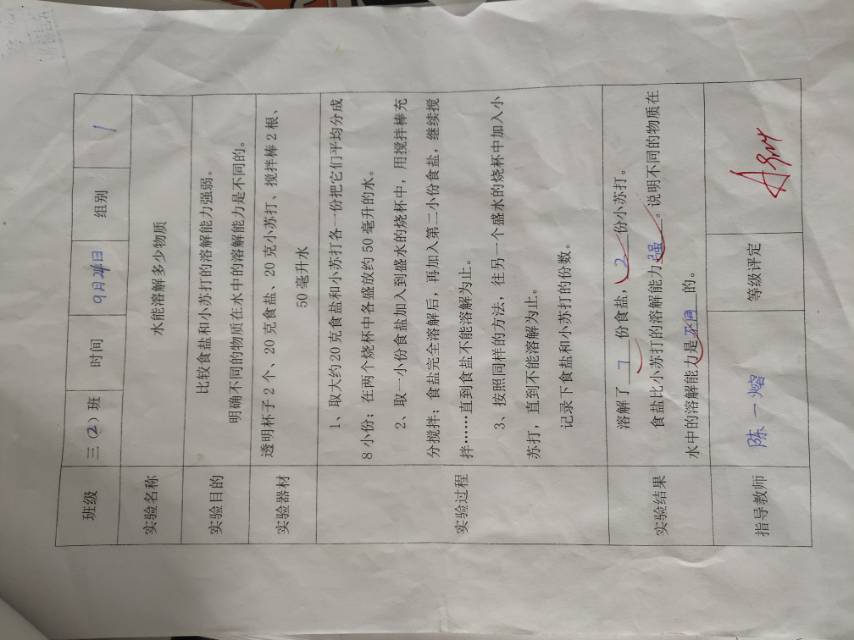 班级 三（2）班 时间 9月24日 组别 1
实验名称 水能溶解多少物质
实验目的 比较食盐和小苏打的溶解能力强弱。
明确不同的物质在水中的溶解能力是不同的。
实验器材 透明杯子2个、20克食盐、20克小苏打、搅拌棒2根、
50毫升水
实验过程
1、取大约20克食盐和小苏打各一份把它们平均分成
8小份；在两个烧杯中各盛放约50毫升的水。
2、取一小份食盐加入到盛水的烧杯中，用搅拌棒充
分搅拌；食盐完全溶解后，再加入第二小份食盐，继续搅
拌……直到食盐不能溶解为止。
3、按照同样的方法，往另一个盛水的烧杯中加入小
苏打，直到不能溶解为止。
记录下食盐和小苏打的份数。
实验结果
溶解了 7 份食盐，2 份小苏打。
食盐比小苏打的溶解能力 强 。说明不同的物质在
水中的溶解能力是 不同 的。
指导教师 陈一熔 等级评定